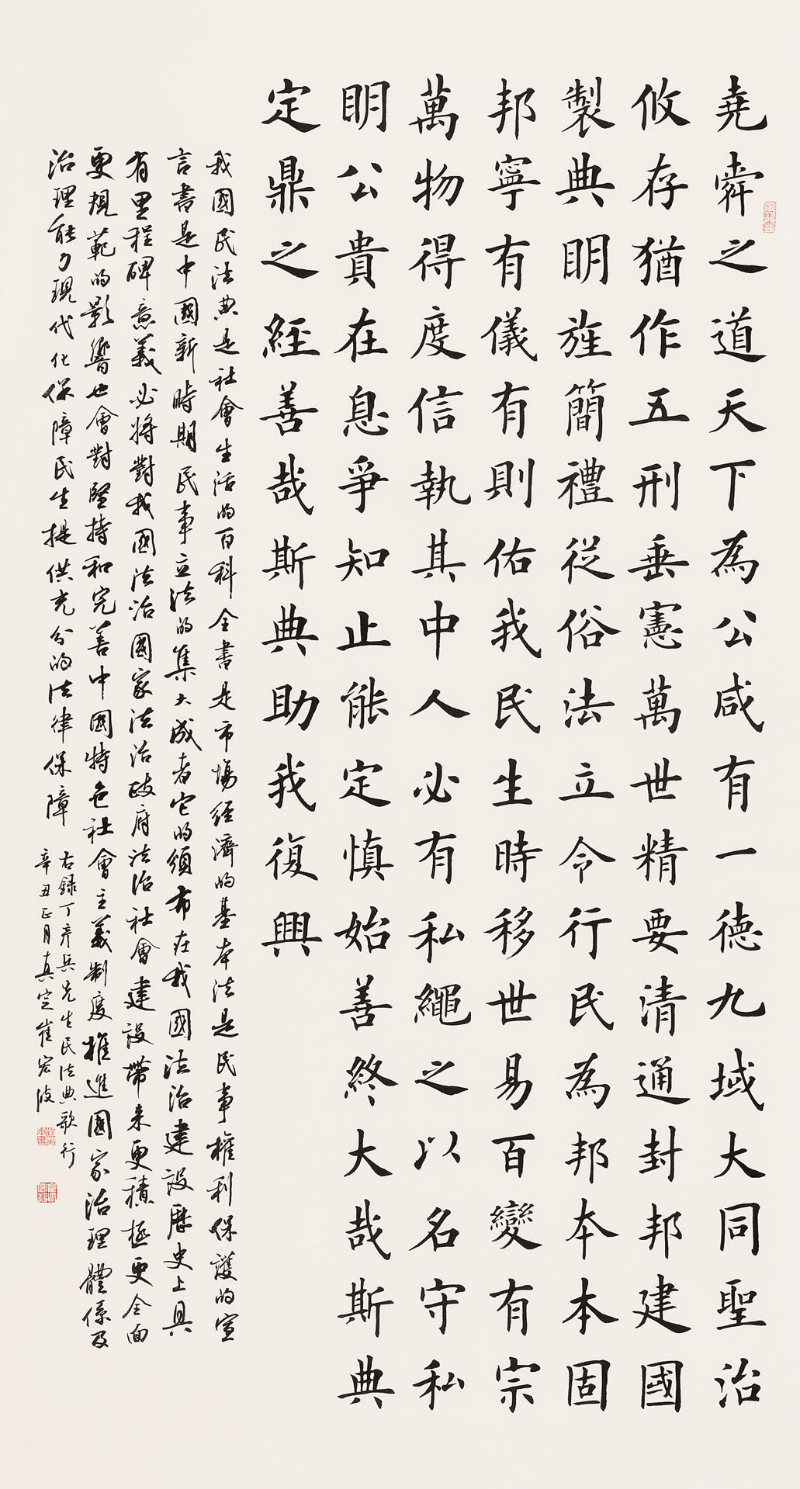 尭舜之道天下為公咸有一德九域大同聖治
攸存猶作五刑垂憲萬世精要清通封邦建國
製典明旌簡禮從俗法立令行民為邦本本固
邦寧有儀有則佑我民生時移世易百變有宗
萬物得度信執其中人必有私繩之以名守私
明公貴在息爭知止能定慎始善終大哉斯典
定鼎之經善哉斯典助我復興
我國民法典是社會生活的百科全書是市場經濟的基本法是民事權利保護的宣
言書是中國新時期民事立法的集大成者它的頒布在我國法治建設歷史上具
有里程碑意義必將對我國法治國家法治政府法治社會建設帶来更積極更全面
更規範的影響也會對堅持和完善中國特色社會主義制度推進國家治理體係及
治理能力現代化保障民生提供充分的法律保障
右録丁彦兵先生民法典歌行
辛丑正月真定崔宏波